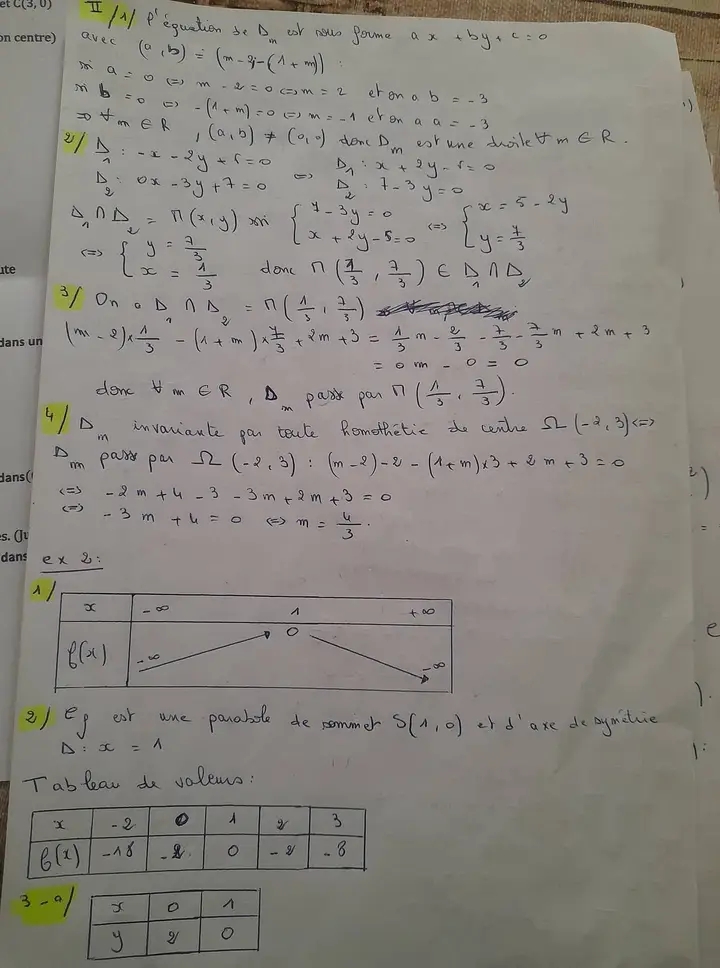 et C(3, 0)
on centre)
ute
dans un
dans(
s. (Ju
dans
II/1/ l'équation de Dm est sous forme ax + by + c = 0
avec (a, b) = (m-2; -(1+m)) :
si a = 0 <=> m - 2 = 0 <=> m = 2 et on a b = -3
si b = 0 <=> -(1+m) = 0 <=> m = -1 et on a a = -3
=> ∀ m ∈ R, (a, b) ≠ (0, 0) donc Dm est une droite ∀ m ∈ R.
2/ D1 : -x - 2y + 5 = 0 <=> D1 : x + 2y - 5 = 0
D2 : 0x - 3y + 7 = 0 D2 : 7 - 3y = 0
D1 ∩ D2 = M(x, y) ssi { 7 - 3y = 0 ; x + 2y - 5 = 0 <=> { x = 5 - 2y ; y = 7/3
<=> { y = 7/3 ; x = 1/3 donc M(1/3, 7/3) ∈ D1 ∩ D2
3/ On a D1 ∩ D2 = M(1/3, 7/3)
(m - 2) × 1/3 - (1 + m) × 7/3 + 2m + 3 = 1/3 m - 2/3 - 7/3 - 7/3 m + 2m + 3
= 0m - 0 = 0
donc ∀ m ∈ R, Dm passe par M(1/3, 7/3).
4/ Dm invariante par toute homothétie de centre Ω(-2, 3) <=>
Dm passe par Ω(-2, 3) : (m - 2) - 2 - (1+m) × 3 + 2m + 3 = 0
<=> -2m + 4 - 3 - 3m + 2m + 3 = 0
<=> -3m + 4 = 0 <=> m = 4/3.
ex 2:
1/
x -∞ 1 +∞
f(x) -∞ 0 -∞
2) Cf est une parabole de sommet S(1, 0) et d'axe de symétrie
Δ: x = 1
Tableau de valeurs:
x -2 0 1 2 3
f(x) -18 -2 0 -2 -8
3-a/
x 0 1
y 2 0